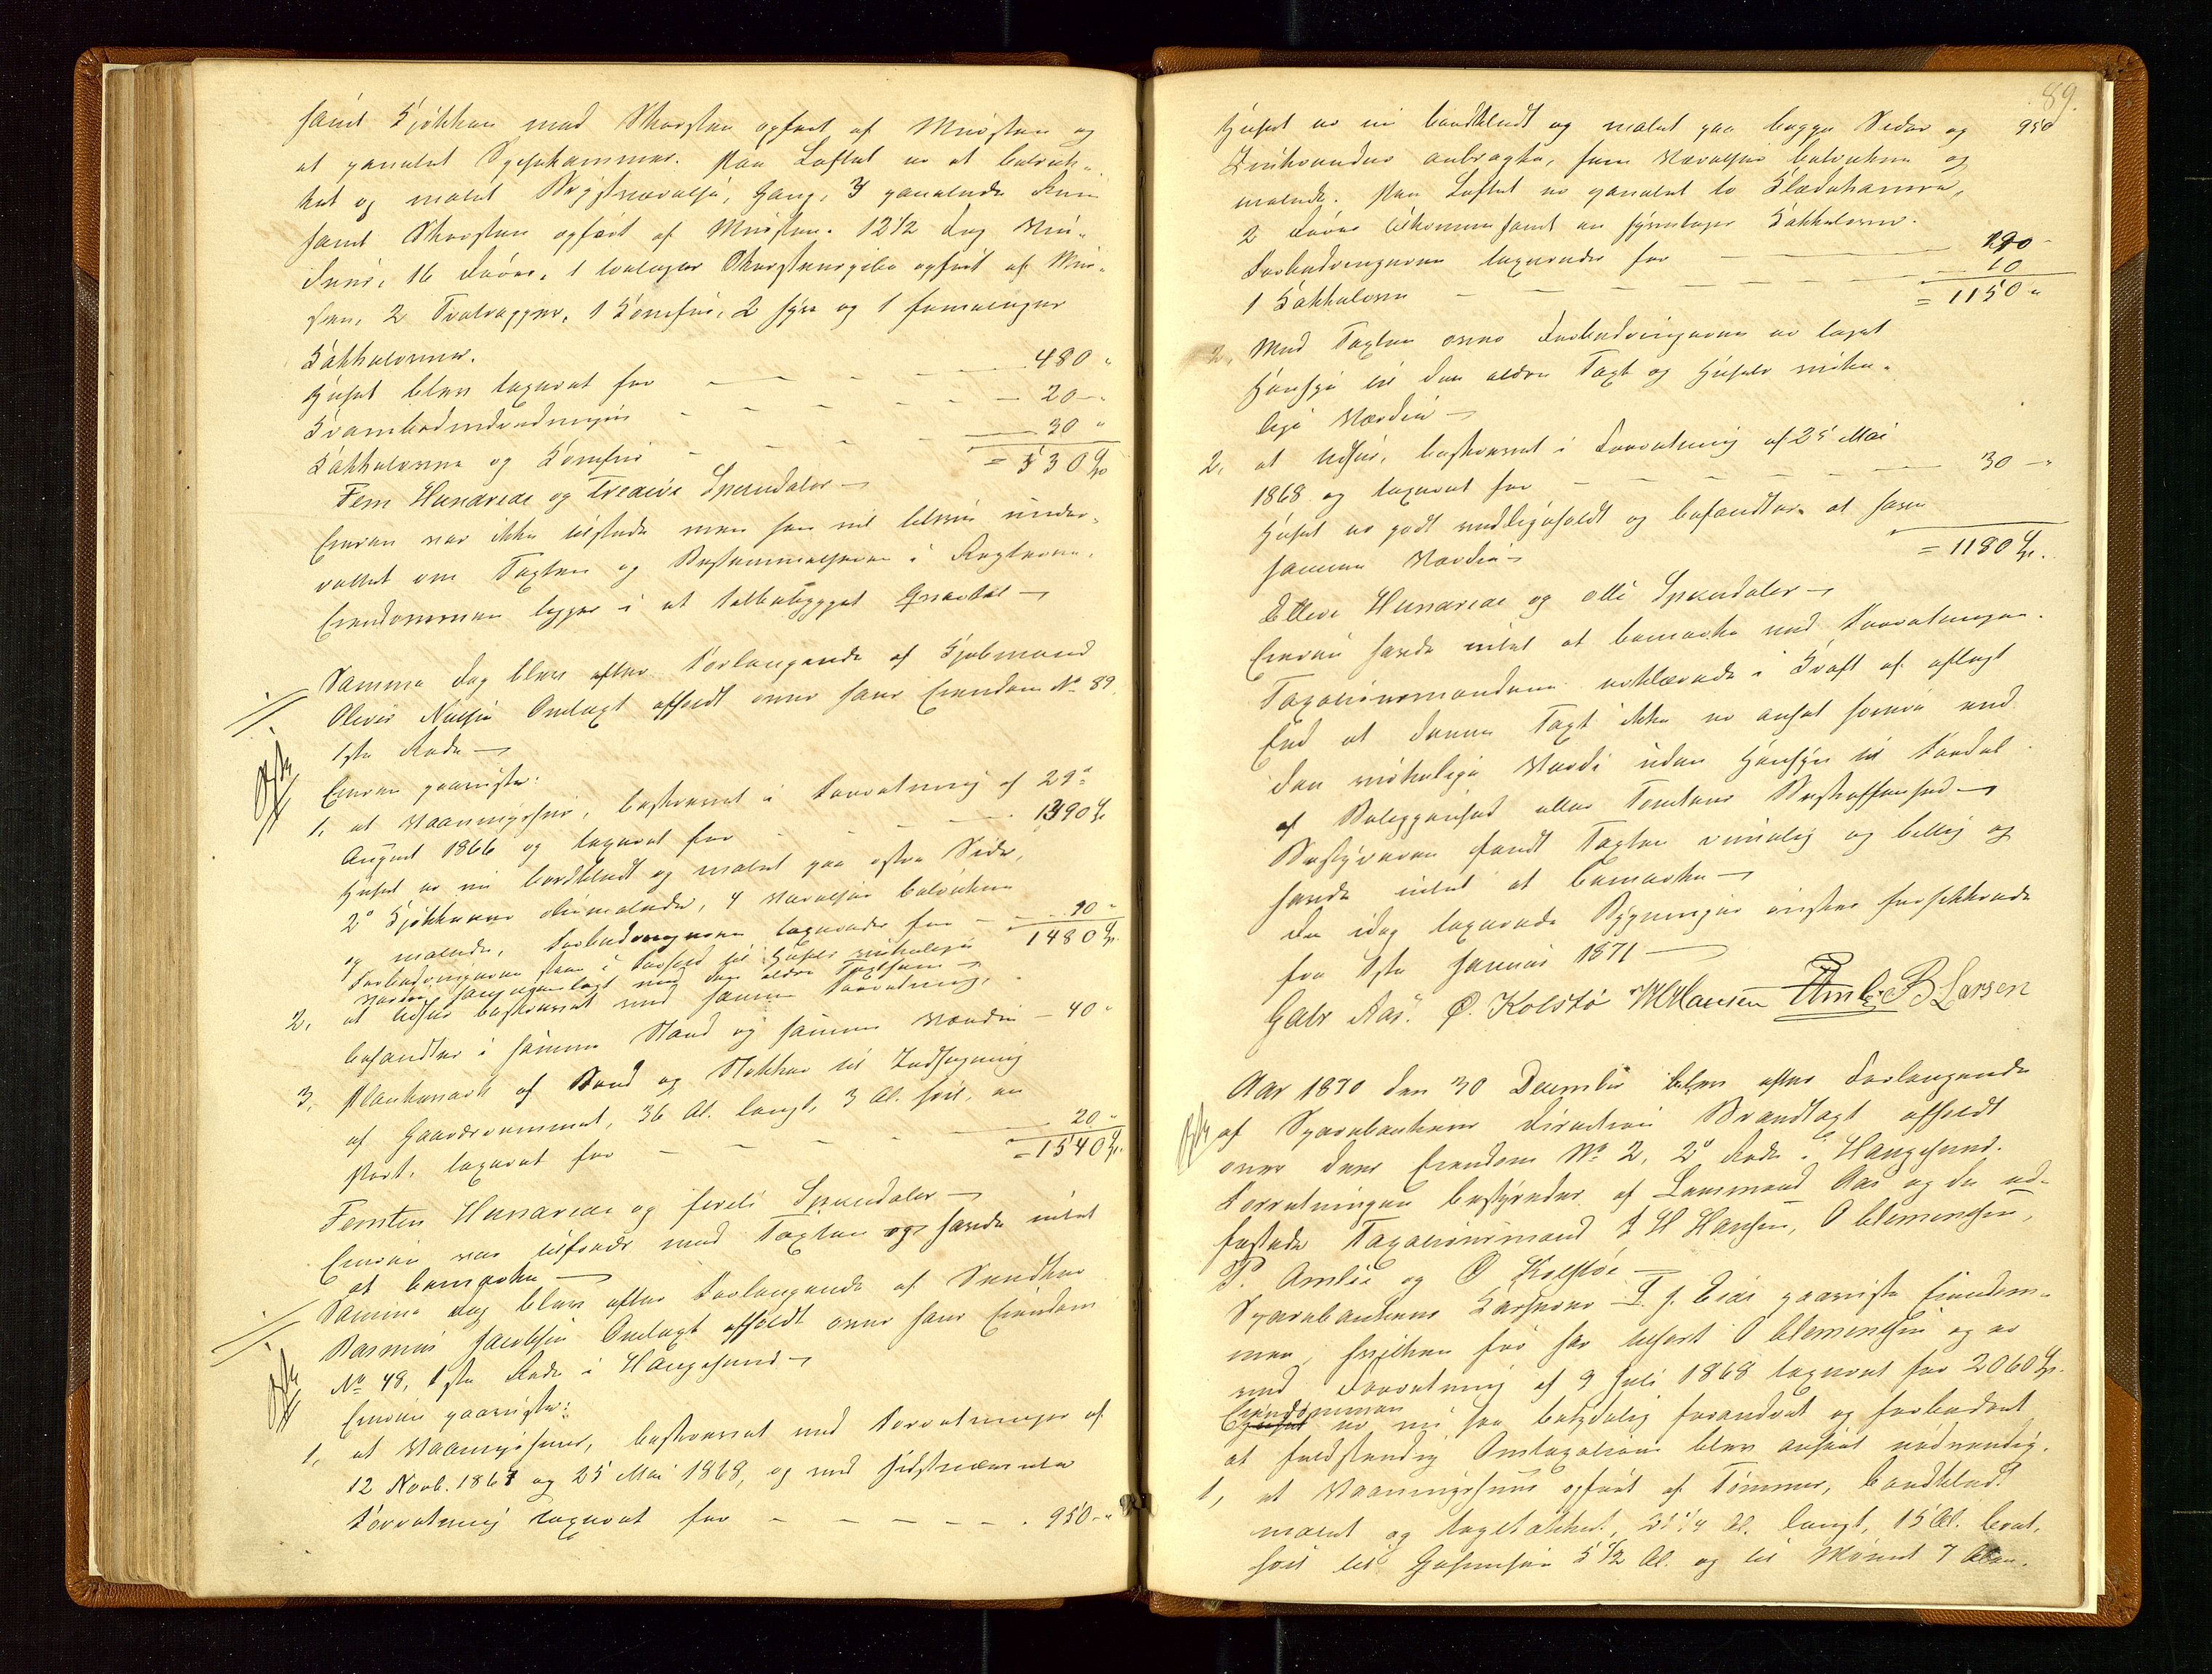 samt Kjøkken med Skorsten opført af Mursten og
et panelet Spisekammer. Paa Loftet er et betruk-
ket og malet Værelse, Gang, 3 panelede Rum
samt Skorsten opført af Mursten. 12 1/2 Fag Vin-
duer, 16 Døre, 1 Skorstenspibe opført af Mur-
sten, 2 Tratrapper, 1 Komfur, 2 fyr og 1 femetages
Kakkelovne.
Huset blev taxeret for — — — — 480 "
Brandbodindredningen — — — — 20 - "
Kakkelovne og Komfur — — — 30 "
= 530 Spd
Fem Hundrede og tredive Speciedaler —
Eieren var ikke tilstede men han vil blive under-
rettet om Taxten og Bestemmelserne i Reglerne.
Eiendommen ligger i et tætbebygget Qvartal —
Samme Dag blev efter Forlangende af Kjøbmand
Oliver Nilsen Omtaxt afholdt over hans Eiendom No 89.
1ste Rode —
Eieren paaviste:
1, et Vaaningshus, beskrevet i Forretning af 29de
August 1866 og taxeret for — — — 1390 Spd
Huset er nu bordklædt og malet paa østre Side,
2de Kjøkkener oliemalede, 4 Værelser betrukne
og malede, Forbedringerne taxeredes for — — 90 "
1480 Spd.
Forbedringerne staa i Forhold til Husets virkelige
Værdi sammenlagt med den ældre Taxtsum —
2, et Udhus beskrevet ved samme Forretning,
befandtes i samme Stand og samme Værdi — 40 "
3, Plankeværk af Bord og Stokker til Indhegning
af Gaardsrummet, 36 Al. langt, 3 Al. høit, en
Port, taxeret for — — — — 20 "
= 1540 Spd.
Femten Hundrede og firti Speciedaler —
Eieren var tilfreds med Taxten og havde intet
at bemærke —
Samme Dag blev efter Forlangende af Snedker
Rasmus Jacobsen Omtaxt afholdt over hans Eiendom
No 48, 1ste Rode i Haugesund —
Eieren paaviste:
1, et Vaaningshus, beskrevet ved Forretninger af
12 Novb. 1867 og 25 Mai 1868, og ved sidstnævnte
Forretning taxeret for — — — — — 950 - "
89.
Huset er nu bordklædt og malet paa begge Sider og 950
Vindskeder anbragte, fem Værelser betrukne og
malede. Paa Loftet er panelet to Klædekamre,
2 Døre tilkomne samt en Kakkelovn.
Forbedringerne taxeredes for — — — 190 -
1 Kakkelovn — — — — — — 10
= 1150 "
2, Med Taxten over Forbedringerne er taget
Hensyn til den ældre Taxt og Husets virke-
lige Værdi —
2, et Udhus, beskrevet i Forretning af 25 Mai
1868 og taxeret for — — — — — 30 - "
Huset er godt vedligeholdt og befandtes at have
samme Værdi —
= 1180 Spd.
Elleve Hundrede og otti Speciedaler —
Eieren havde intet at bemærke ved Forretningen.
Taxationsmændene erklærede i Kraft af aflagt
Eed at denne Taxt ikke er ansat høiere end
den virkelige Værdi uden Hensyn til Fordel
af Beliggenhed eller Tomtens Beskaffenhed —
Bestyreren fandt Taxten rimelig og billig og
havde intet at bemærke —
De idag taxerede Bygninger ønskes forsikkrede
fra 1ste Januar 1871 —
Gabr Aas. O. Kolstø WHansen Amlie B Larsen
Aar 1870 den 30 December blev efter Forlangende
af Sparebankens Direction Brandtaxt afholdt
over dens Eiendom No 2, 2den Rode i Haugesund.
Forretningen bestyredes af Lensmand Aas og de ed-
fæstede Taxationsmænd W Hansen, O Clemensen,
P. Amlie og O Kolstø —
Sparebankens Kasserer T. J. Eide paaviste Eiendom-
men, hvilken før har tilhørt O Clemensen og er
ved Forretning af 9 Juli 1868 taxeret for 2060 Spd.
Eiendommen
er nu saa betydelig forandret og forbedret
at fuldstændig Omtaxation blev anseet nødvendig.
1, et Vaaningshus opført af Tømmer, bordklædt
malet og tagstakket, 21 1/4 Al. langt, 15 Al. bredt,
høit til Gesimsen 5 1/2 Al. og til Mønet 7 Alen.